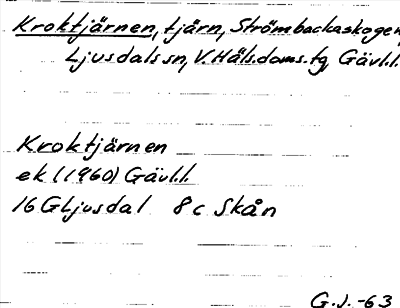 Kroktjärnen, tjärn, Strömbackaskogen,
Ljusdals sn, V. Häls. doms. tg Gävl.l.
Kroktjärnen
ek (1960) Gävl.l.
16 G Ljusdal 8 c Skån
G.J. -63